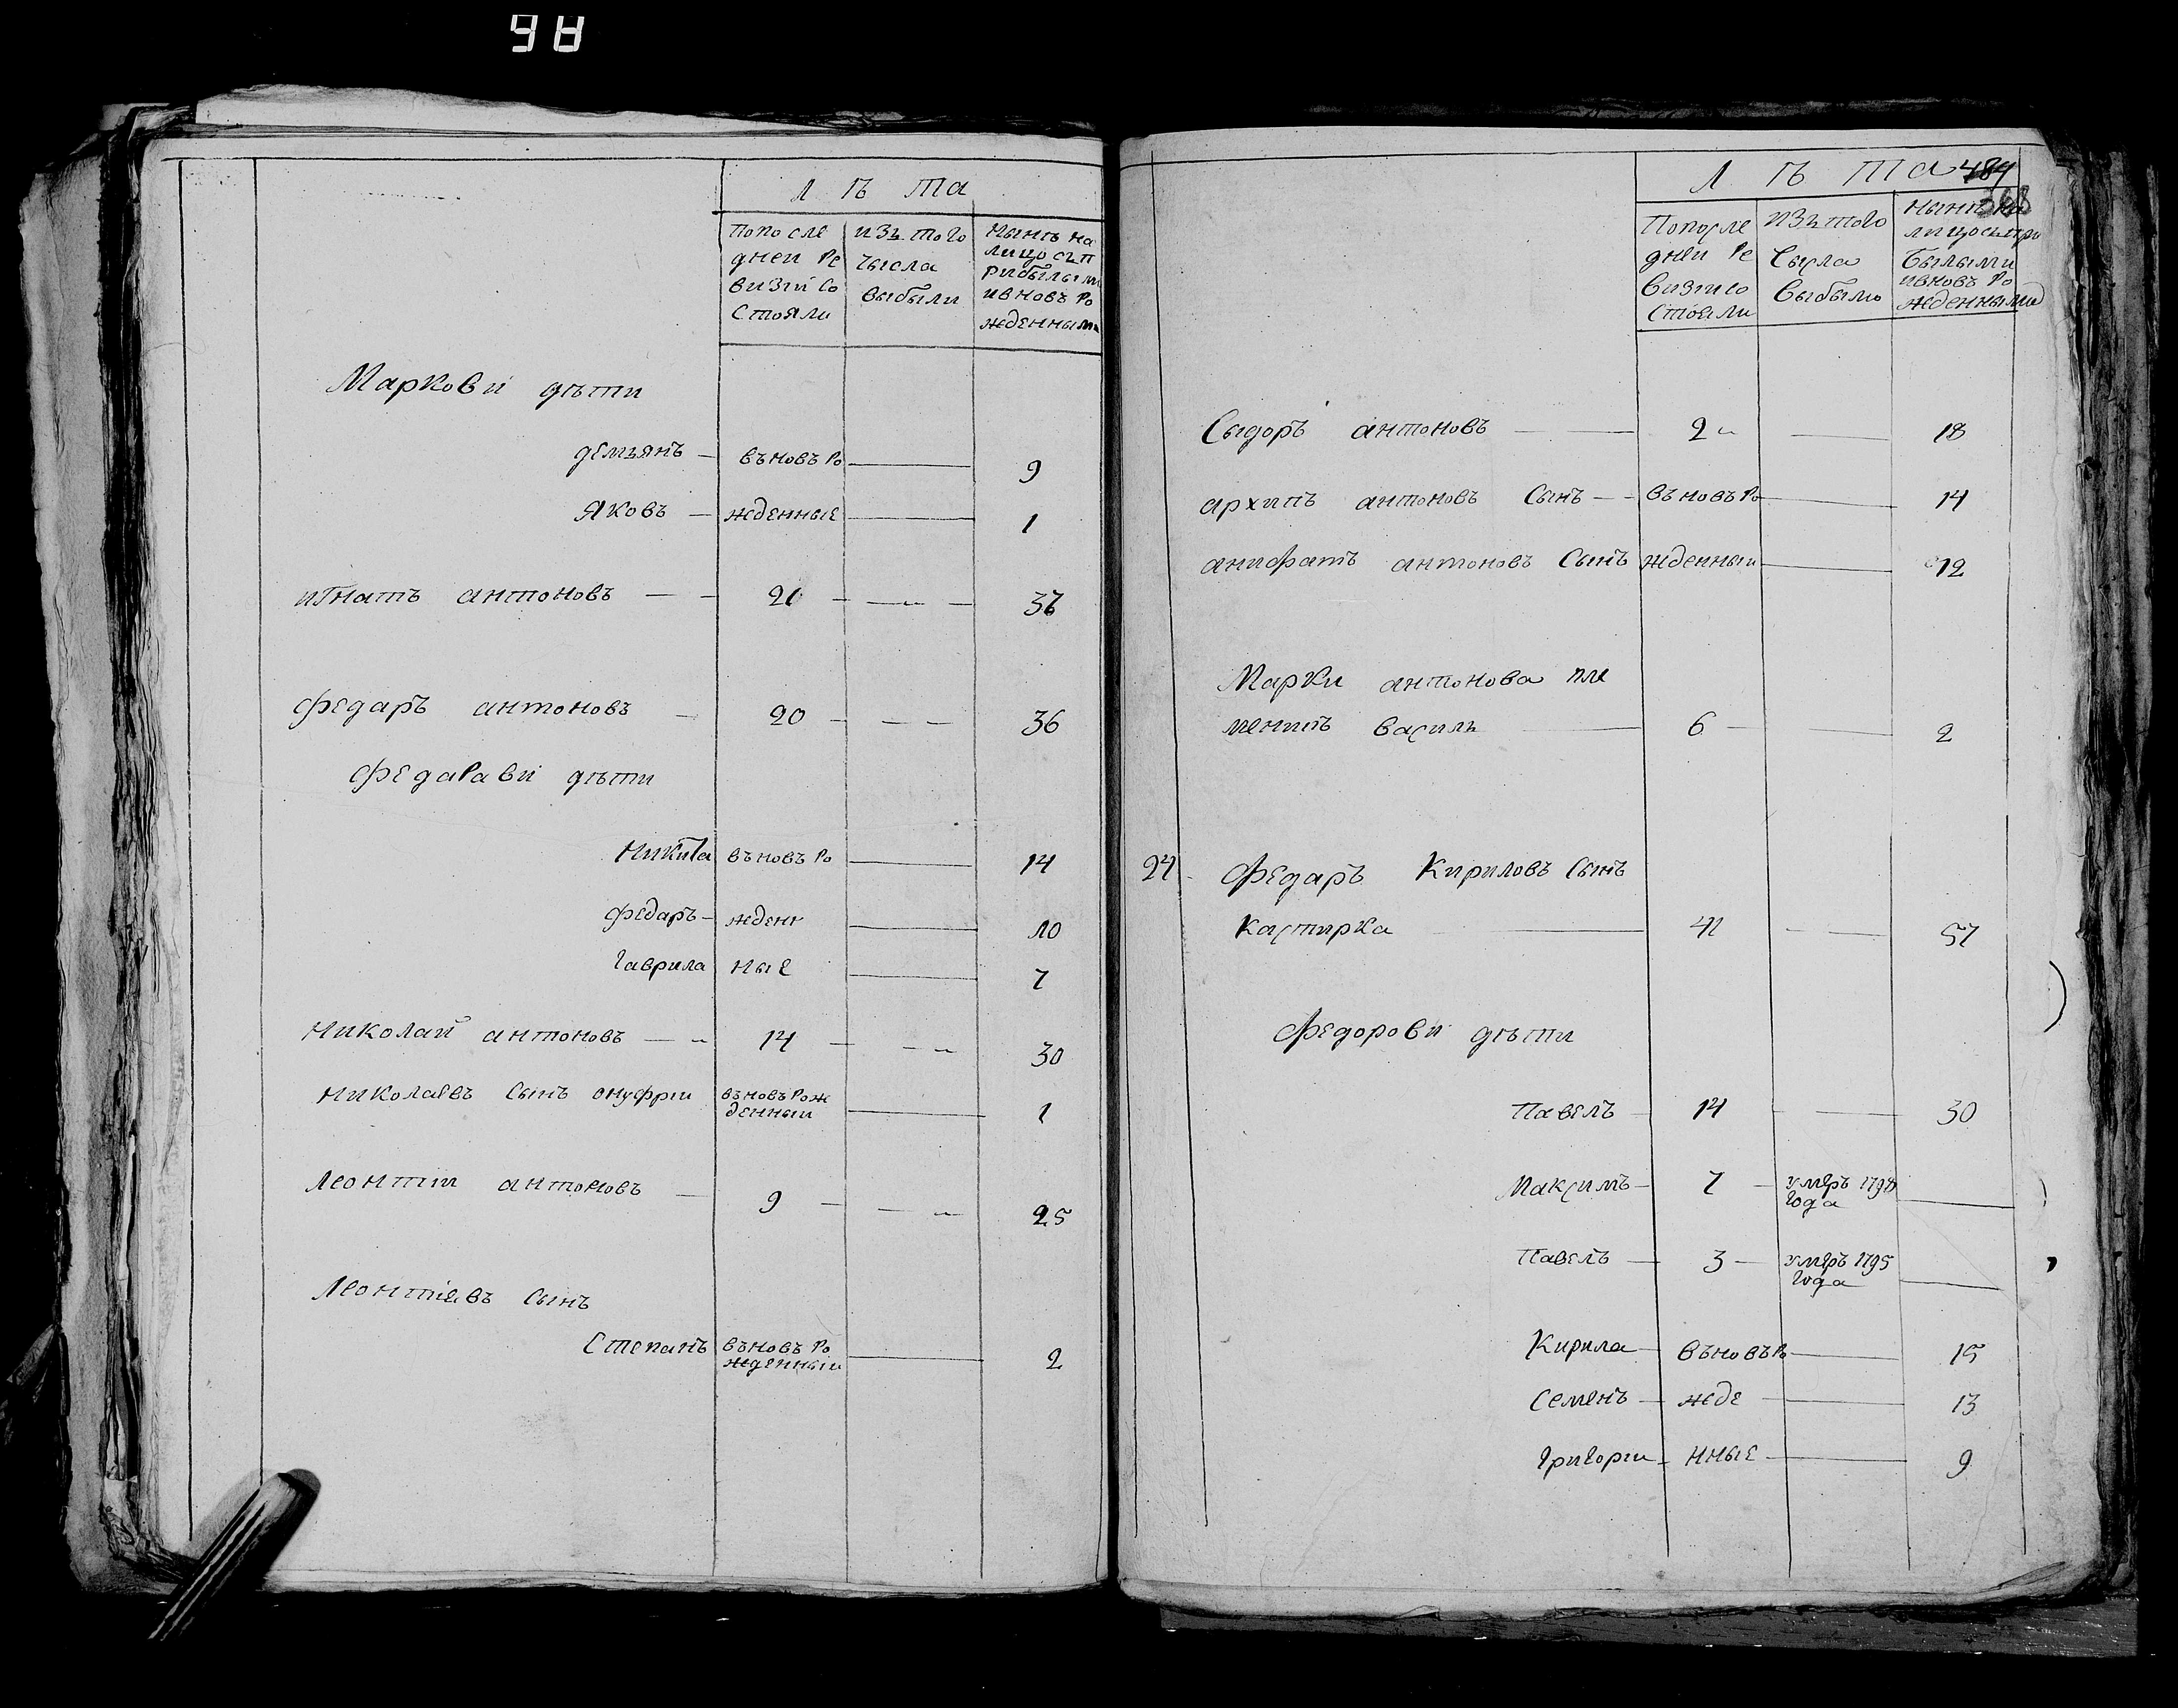 98
Л ѣ та
По после
дней ре
визіи со
стояли
изъ того
числа
выбыли
Нынѣ на
лицо съ п
рибылыми
и вновь ро
жденными
Маркови дѣти
демьянъ — въновъ ро — 9
Яковъ — жденные — 1
игнатъ антоновъ — 20 — 36
федаръ антоновъ — 20 — 36
федарави дѣти
Никита въновъ ро — 14
федаръ — жденн — 10
гаврила ные — 7
николай антоновъ — 14 — 30
николаевъ сынъ онуфріи въновъ рож
денныи — 1
леонтіи антоновъ — 9 — 25
Леонтіевъ сынъ
Степанъ въновъ ро
жденныи — 2
Л ѣ та 484
368
По после
дней ре
визіи со
стояли
изъ того
числа
выбыло
Нынѣ на
лицо съ при
былыми
и вновь ро
жденными
Сыдоръ антоновъ — 2 — 18
архипъ антоновъ сынъ — въновъ ро — 14
анифатъ антоновъ сынъ жденныи — 12
Марки антонова пле
менникъ василь — 6 — 2
24 федаръ Кириловъ сынъ
Кастирка — 41 — 57
федорови дѣти
Павелъ 14 — 30
Максимъ — 7 — умеръ 1798
года —
Павелъ — 3 — умеръ 1795
года —
Кирила — въновъ ро — 15
Семенъ — жде — 13
григории — нные — 9